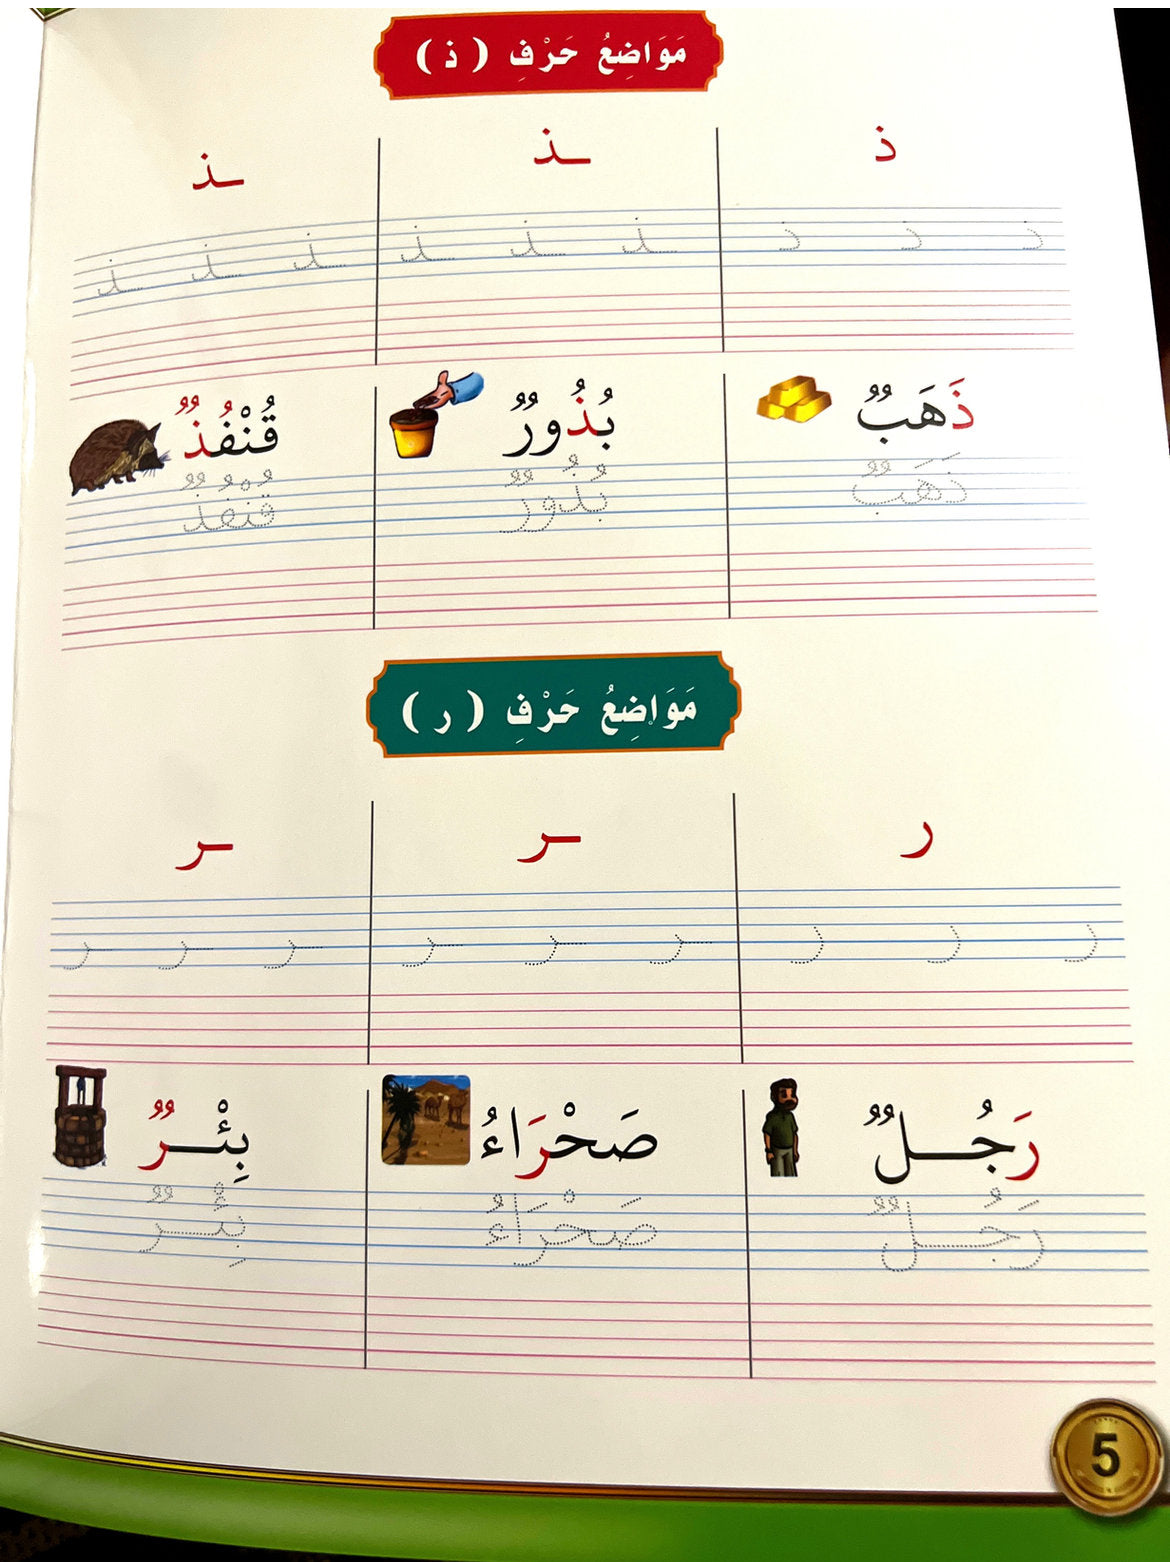 مَوَاضِعُ حَرْفِ ( ذ )
ذ ـذ ـذ
ذ ذ ذ ـذ ـذ ـذ ـذ ـذ ـذ
ذَهَبٌ بُذُورٌ قُنْفُذٌ
ذَهَبٌ بُذُورٌ قُنْفُذٌ
مَوَاضِعُ حَرْفِ ( ر )
ر ـر ـر
ر ر ر ـر ـر ـر ـر ـر ـر
رَجُـــلٌ صَحْرَاءُ بِئْـــرٌ
رَجُـــلٌ صَحْرَاءُ بِئْـــرٌ
5